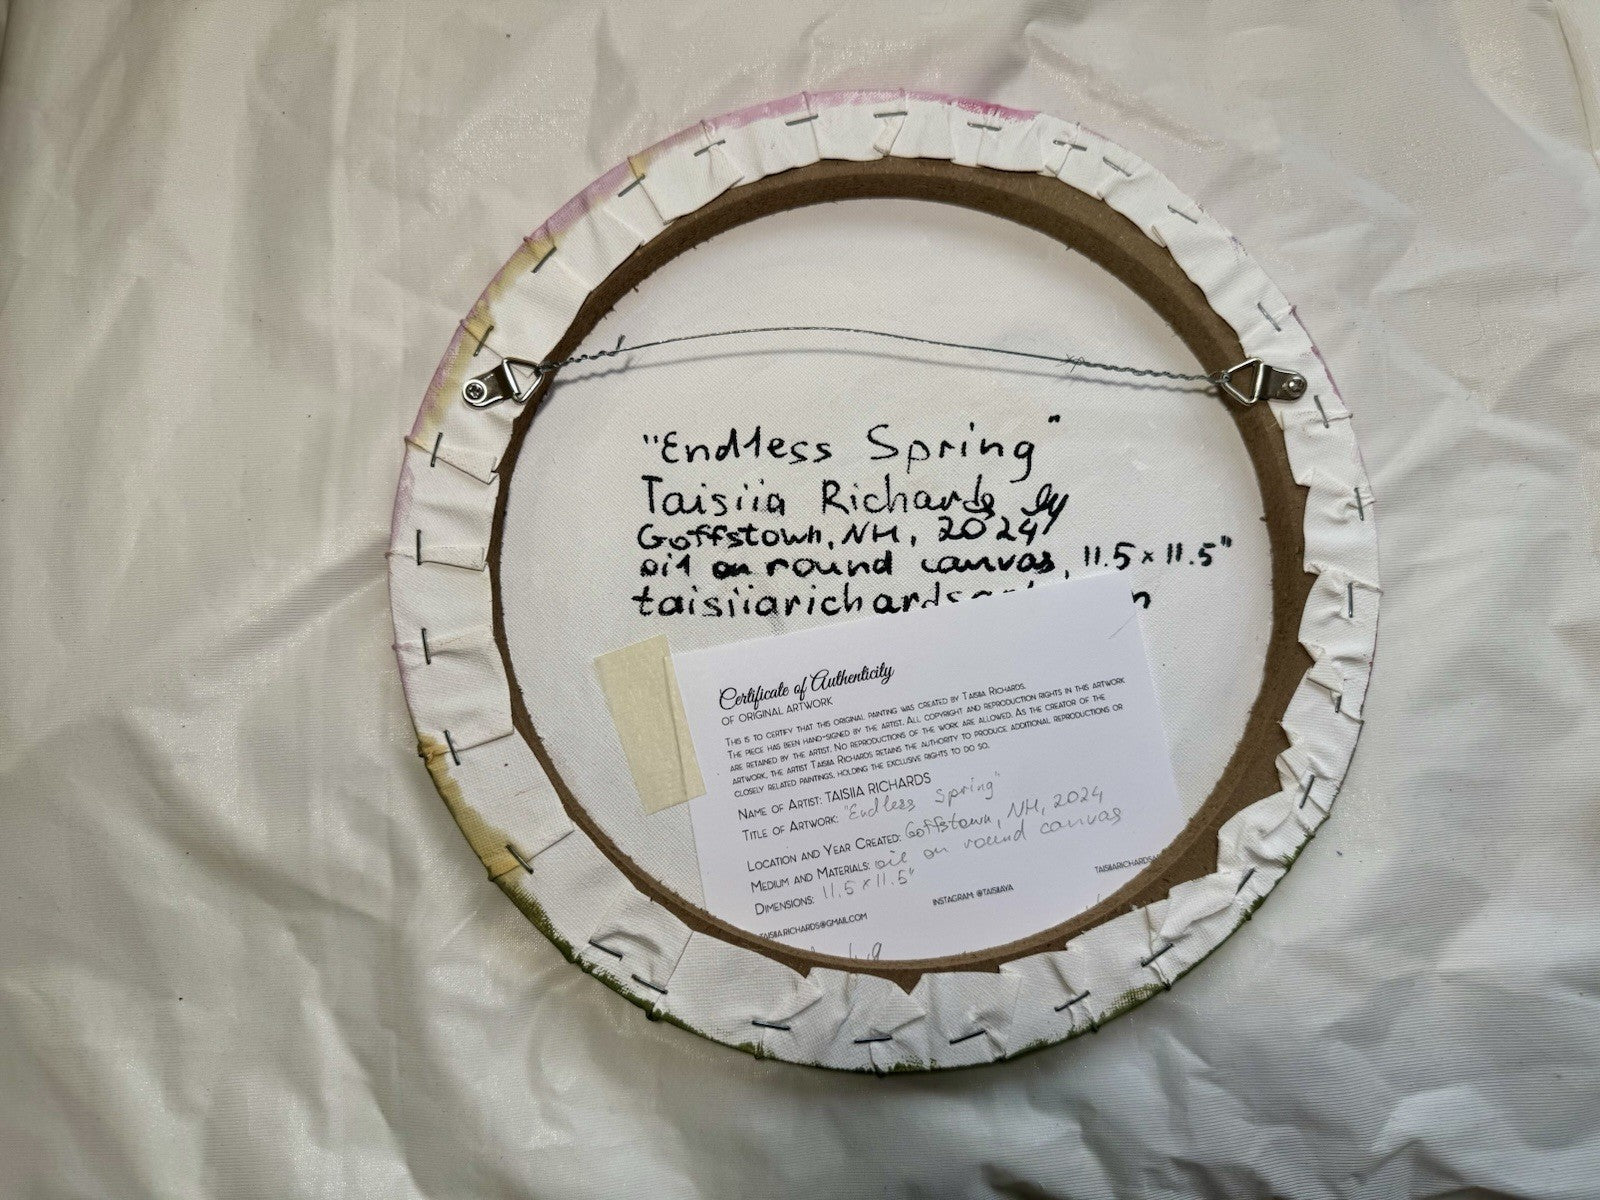 "Endless Spring"
Taisiia Richards
Goffstown, NH, 2024
oil on round canvas, 11.5 x 11.5"
taisiiarichards
Certificate of Authenticity
OF ORIGINAL ARTWORK
THIS IS TO CERTIFY THAT THIS ORIGINAL PAINTING WAS CREATED BY TAISIIA RICHARDS.
THE PIECE HAS BEEN HAND-SIGNED BY THE ARTIST. ALL COPYRIGHT AND REPRODUCTION RIGHTS IN THIS ARTWORK
ARE RETAINED BY THE ARTIST. NO REPRODUCTIONS OF THE WORK ARE ALLOWED. AS THE CREATOR OF THE
ARTWORK, THE ARTIST TAISIIA RICHARDS RETAINS THE AUTHORITY TO PRODUCE ADDITIONAL REPRODUCTIONS OR
CLOSELY RELATED PAINTINGS, HOLDING THE EXCLUSIVE RIGHTS TO DO SO.
NAME OF ARTIST: TAISIIA RICHARDS
TITLE OF ARTWORK: "Endless Spring"
LOCATION AND YEAR CREATED: Goffstown, NH, 2024
MEDIUM AND MATERIALS: oil on round canvas
DIMENSIONS: 11.5 x 11.5"
TAISIIA.RICHARDS@GMAIL.COM INSTAGRAM: @TAISIIAYA TAISIIARICHARDSA